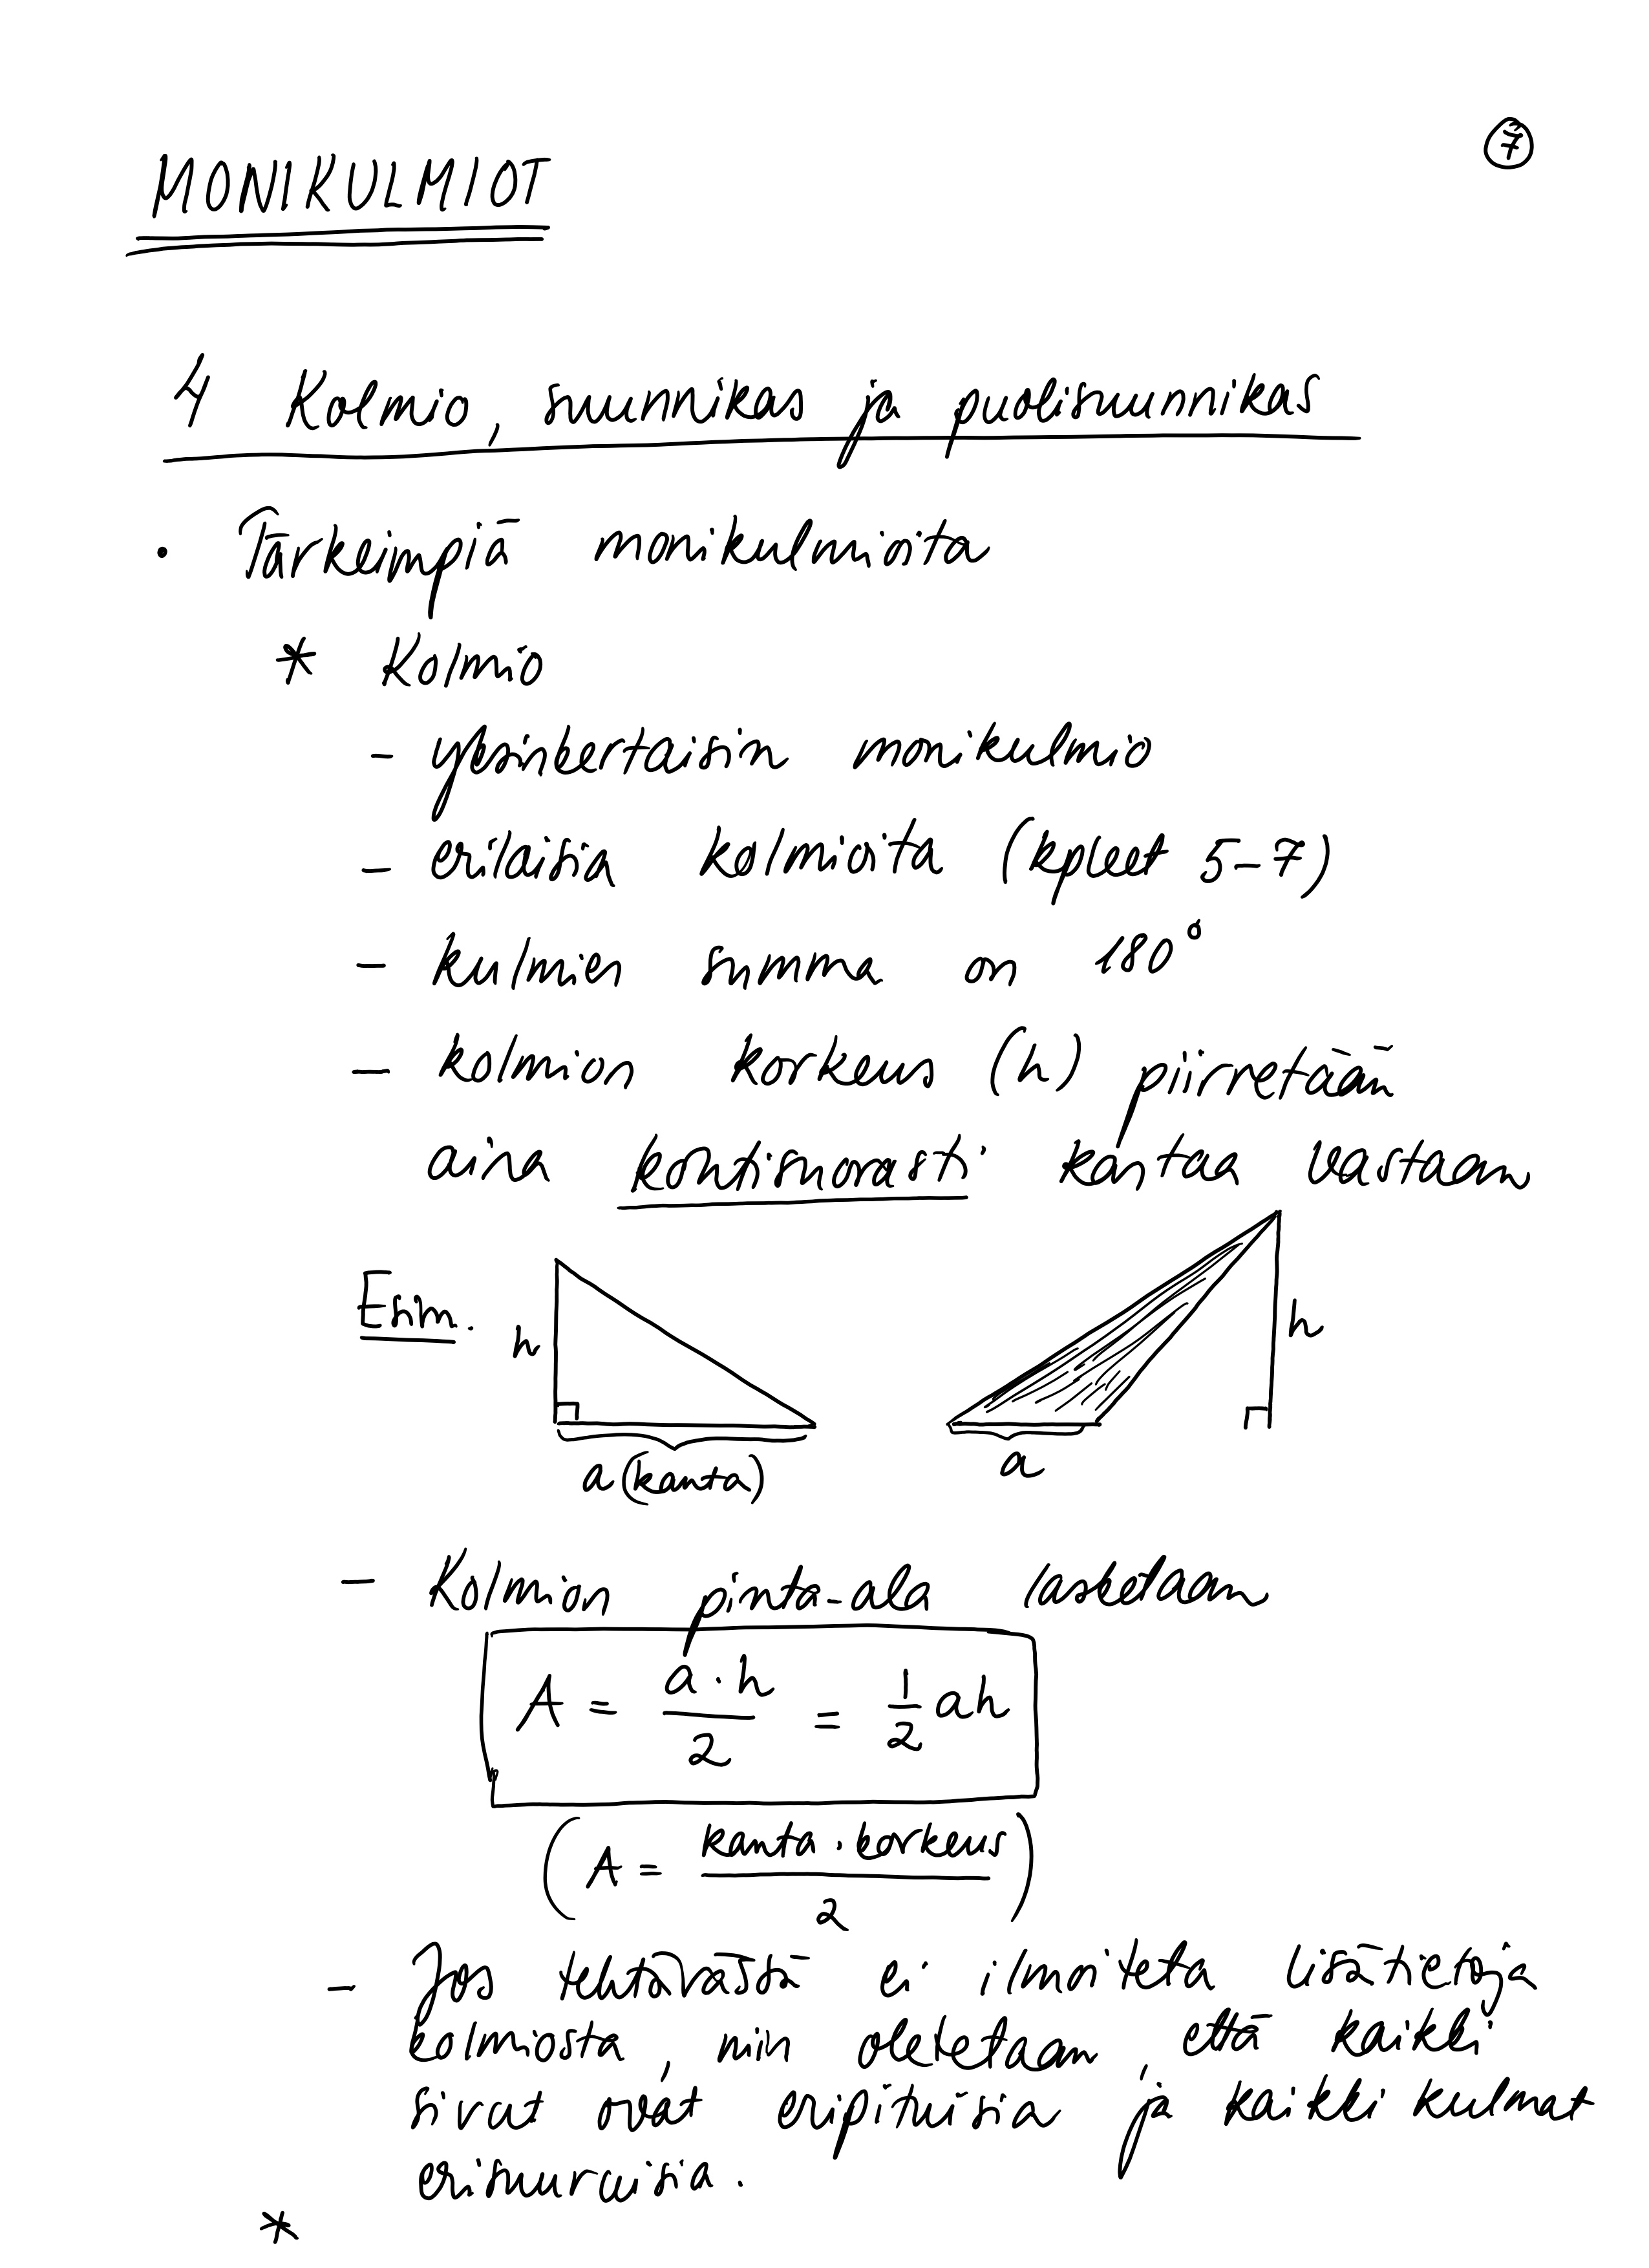 7
MONIKULMIOT
4 Kolmio, suunnikas ja puolisuunnikas
• Tärkeimpiä monikulmioita
* Kolmio
- yksinkertaisin monikulmio
- erilaisia kolmioita (kpleet 5-7)
- kulmien summa on 180°
- kolmion korkeus (h) piirretään
aina kohtisuorasti kantaa vastaan
Esim.
h
h
a (kanta)
a
- Kolmion pinta-ala lasketaan
A = a · h / 2 = 1/2 ah
(A = kanta · korkeus / 2)
- Jos tehtävässä ei ilmoiteta lisätietoja
kolmiosta, niin oletetaan, että kaikki
sivut ovat eripituisia ja kaikki kulmat
erisuuruisia.
*